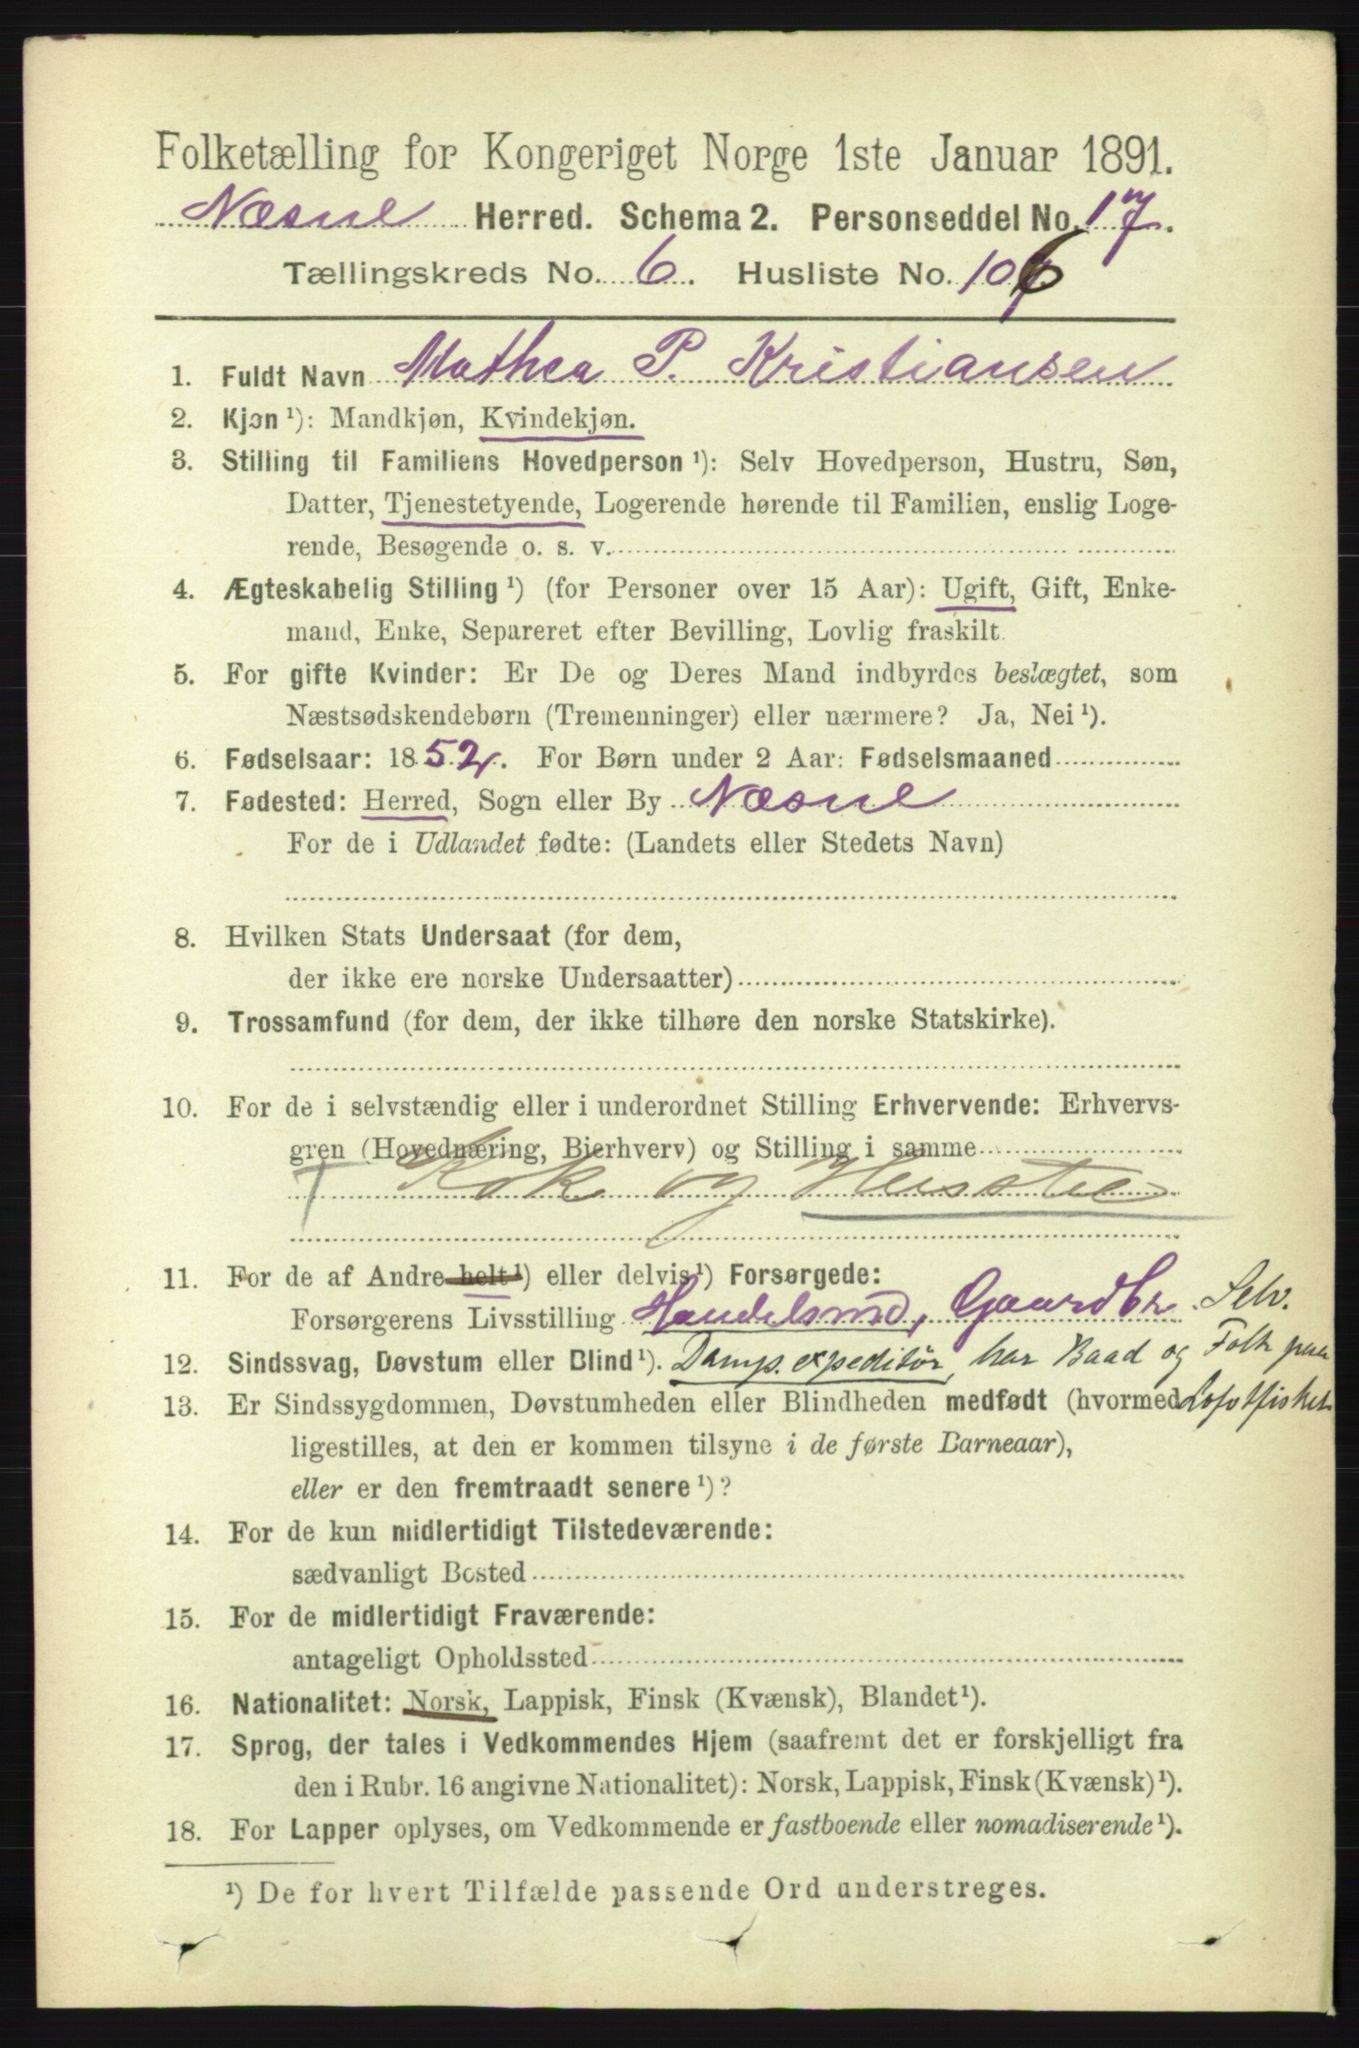 Folketælling for Kongeriget Norge 1ste Januar 1891.
Næsne Herred. Schema 2. Personseddel No. 17.
Tællingskreds No. 6. Husliste No. 106
1. Fuldt Navn Mathea P. Kristiansen
2. Kjøn ¹): Mandkjøn, Kvindekjøn.
3. Stilling til Familiens Hovedperson ¹): Selv Hovedperson, Hustru, Søn,
Datter, Tjenestetyende, Logerende hørende til Familien, enslig Loge-
rende, Besøgende o. s. v.
4. Ægteskabelig Stilling ¹) (for Personer over 15 Aar): Ugift, Gift, Enke-
mand, Enke, Separeret efter Bevilling, Lovlig fraskilt.
5. For gifte Kvinder: Er De og Deres Mand indbyrdes beslægtet, som
Næstsødskendebørn (Tremenninger) eller nærmere? Ja, Nei ¹).
6. Fødselsaar: 1852. For Børn under 2 Aar: Fødselsmaaned
7. Fødested: Herred, Sogn eller By Næsne
For de i Udlandet fødte: (Landets eller Stedets Navn)
8. Hvilken Stats Undersaat (for dem,
der ikke ere norske Undersaatter)
9. Trossamfund (for dem, der ikke tilhøre den norske Statskirke).
10. For de i selvstændig eller i underordnet Stilling Erhvervende: Erhvervs-
gren (Hovednæring, Bierhverv) og Stilling i samme
Kok og
11. For de af Andre helt ¹) eller delvis ¹) Forsørgede:
Forsørgerens Livsstilling Handelsmd, Gaardbr. Selv.
12. Sindssvag, Døvstum eller Blind ¹). Damp. expeditør, har Baad og Folk paa
13. Er Sindssygdommen, Døvstumheden eller Blindheden medfødt (hvormed Lofotfisket
ligestilles, at den er kommen tilsyne i de første Barneaar),
eller er den fremtraadt senere ¹)?
14. For de kun midlertidigt Tilstedeværende:
sædvanligt Bosted
15. For de midlertidigt Fraværende:
antageligt Opholdssted
16. Nationalitet: Norsk, Lappisk, Finsk (Kvænsk), Blandet ¹).
17. Sprog, der tales i Vedkommendes Hjem (saafremt det er forskjelligt fra
den i Rubr. 16 angivne Nationalitet): Norsk, Lappisk, Finsk (Kvænsk) ¹).
18. For Lapper oplyses, om Vedkommende er fastboende eller nomadiserende ¹).
¹) De for hvert Tilfælde passende Ord understreges.